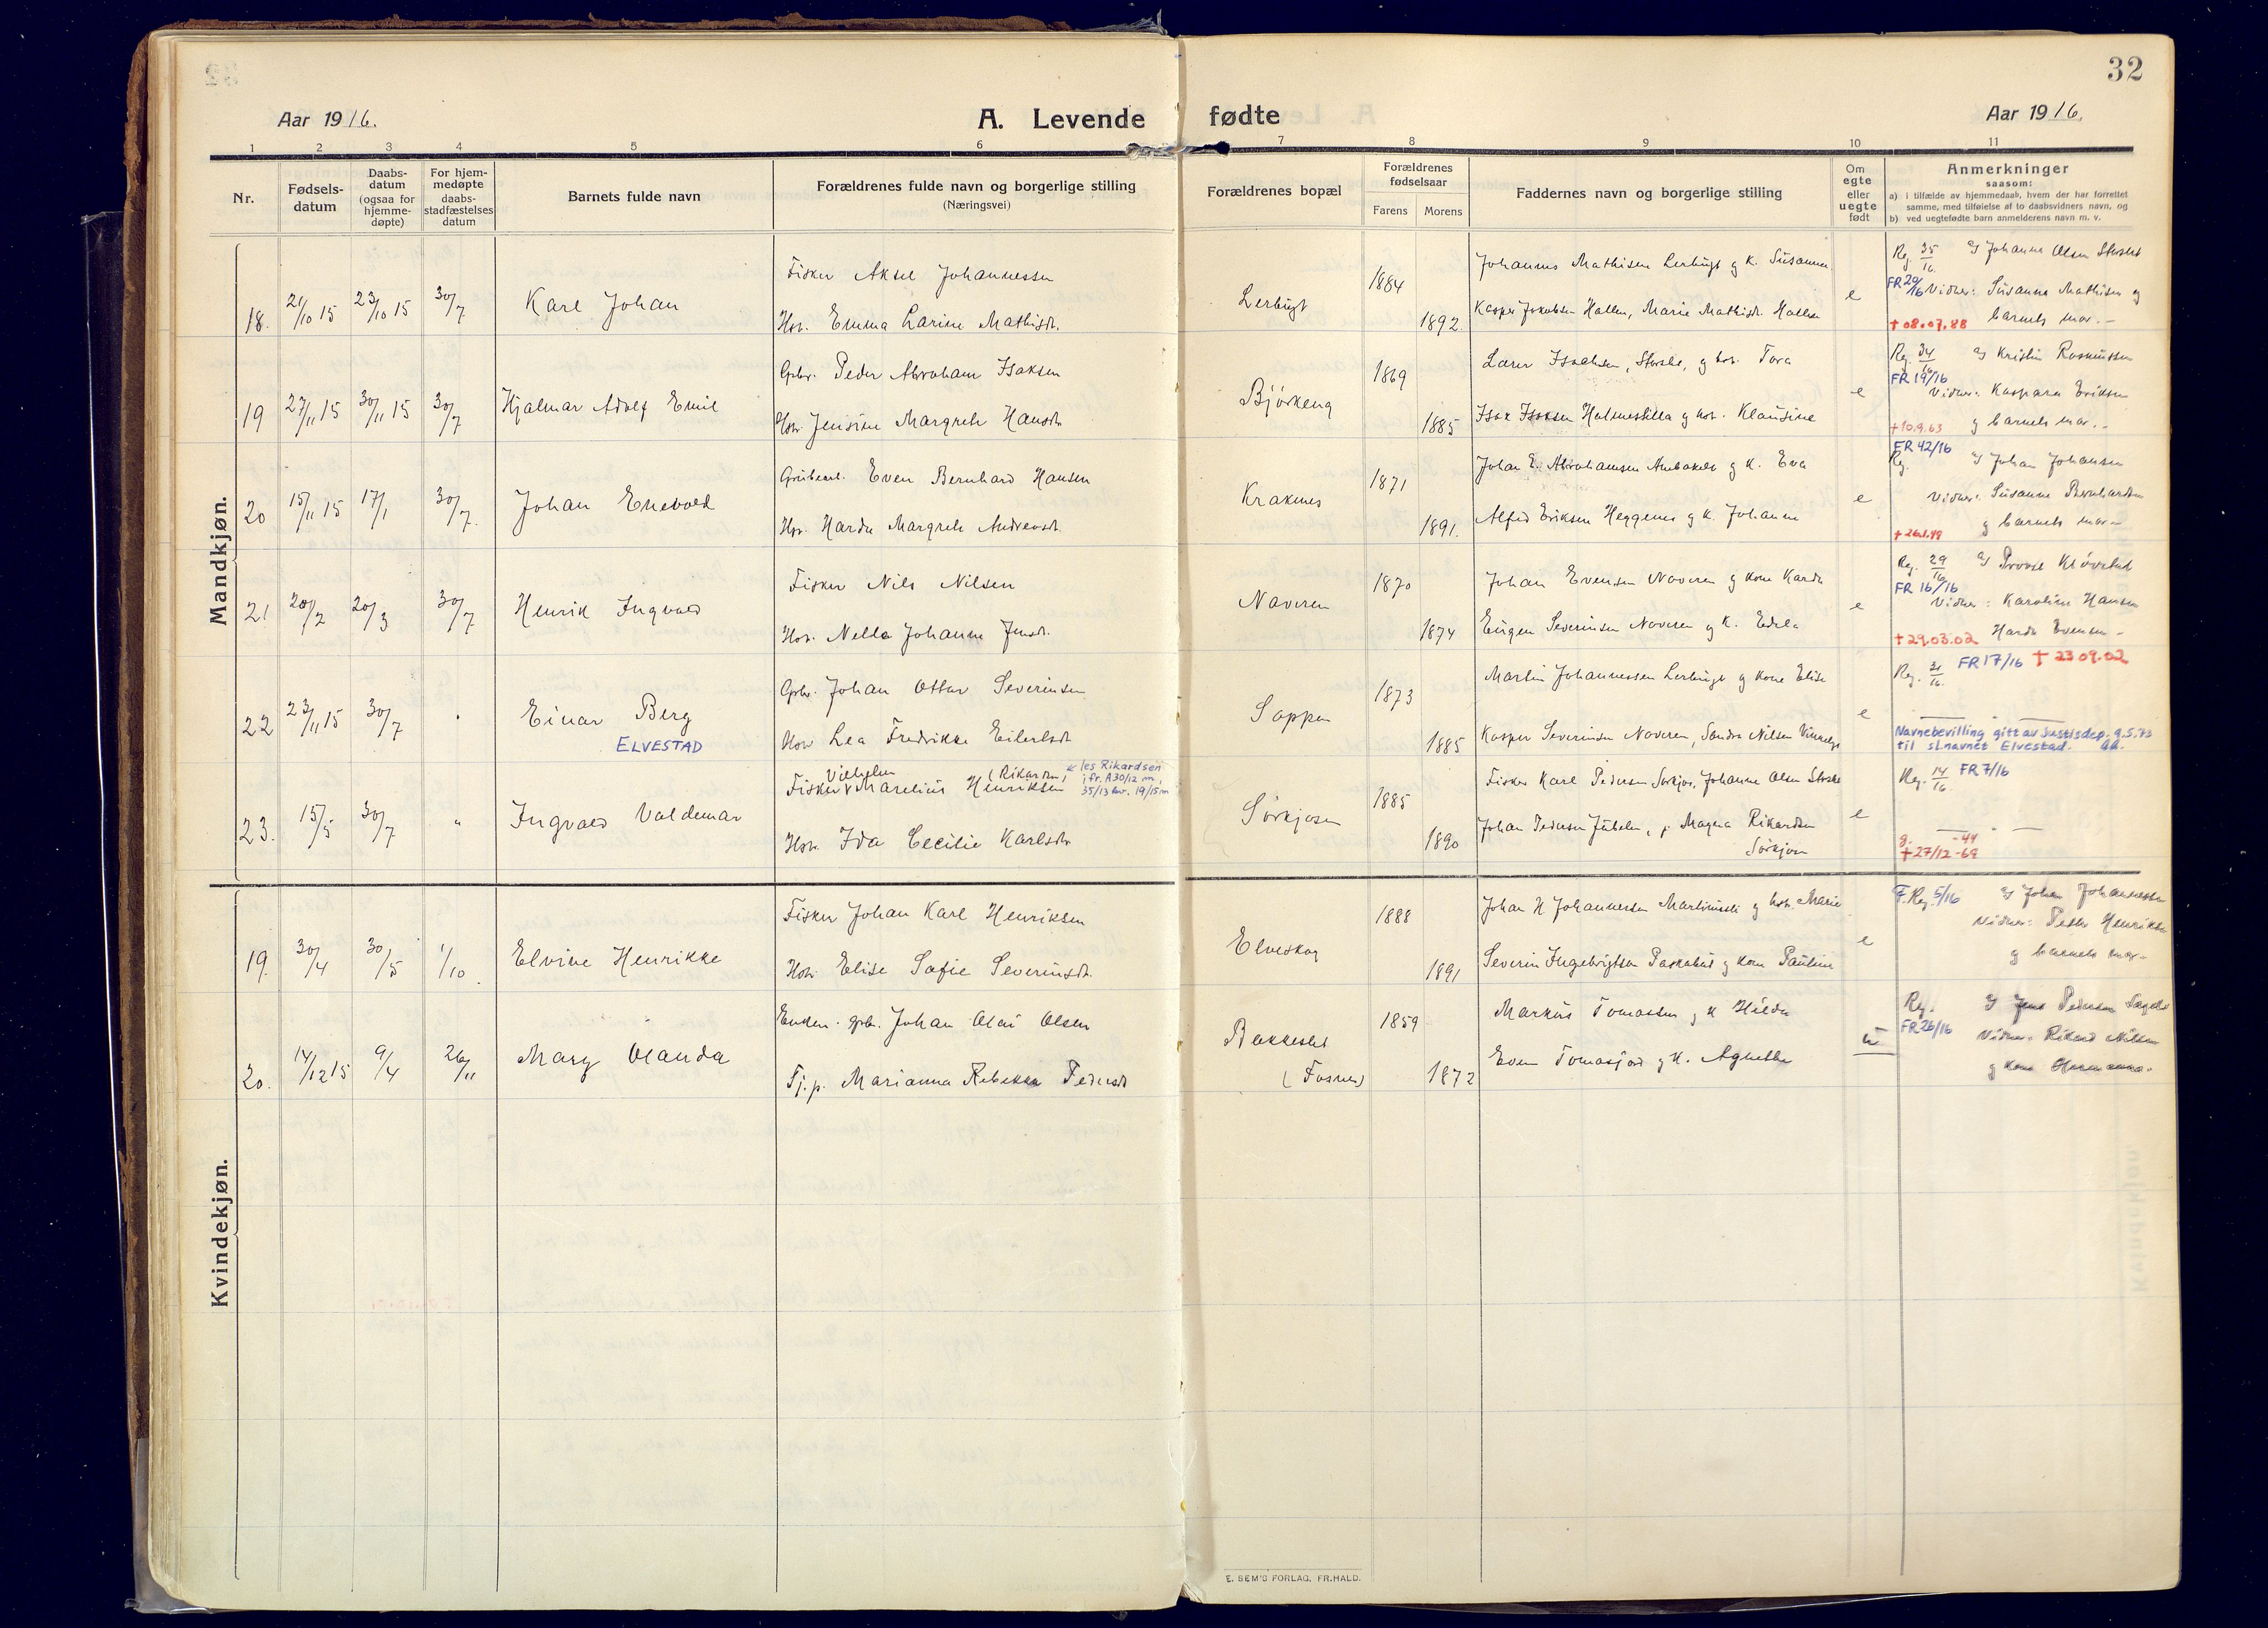 32
Aar 1916.
A. Levende fødte
Aar 1916.
1 2 3 4 5 6 7 8 9 10 11
Nr.
Fødsels-
datum
Daabs-
datum
(ogsaa for
hjemme-
døpte)
For hjem-
medøpte
daabs-
stadfæstelses
datum
Barnets fulde navn
Forældrenes fulde navn og borgerlige stilling
(Næringsvei)
Forældrenes bopæl
Forældrenes
fødselsaar
Farens
Morens
Faddernes navn og borgerlige stilling
Om
egte
eller
uegte
født
Anmerkninger
saasom:
a) i tilfælde av hjemmedaab, hvem der har forrettet
samme, med tilføielse af to daabsvidners navn, og
b) ved uegtefødte barn anmelderens navn m. v.
Mandkjøn.
18. 21/10 15 23/10 15 30/7 Karl Johan
Fisker Aksel Johannessen
Hstr. Emma Larine Mathisdtr.
Lerbugt
1884
1892.
Johannes Mathisen Lerbugt og K. Susanna
Kasper Jakobsen Hallen, Marie Mathisdtr. Hallen
e
Reg. 35/16 v/ Johanne Olsen Storslet
FR 20/16 Vidner: Susanna Mathisen og
+ 08.07.88 barnets mor.-
19 27/11 15 30/11 15 30/7 Hjalmar Adolf Emil
Gbr. Peder Abraham Isaksen
Hstr. Jensine Margreth Hansdtr.
Bjørkeng
1869
1885
Isak Isaksen Holmestilla og hstr. Klausine
e
Reg. 34/16 v/ Kristin Rasmussen
FR 19/16
Vidner: Kaspara Eriksen
+10.9.63 og barnets mor.-
20 15/11 15 17/1 30/7. Johan Enevold
Grubearb. Even Bernhard Hansen
Hstr. Harda Margreth Andreasdtr.
Kraknes
1871
1891.
Johan E. Abrahamsen og K. Eva
Alfred Eriksen Heggenes og K. Johanne
e
FR 42/16
Reg. v/ Johan Johansen
Vidner: Susanne Bernhardsen
+26.1.49 og barnets mor-
21 20/2 20/3 30/7 Henrik Ingvald
Fisker Nils Nilsen
Hstr. Nella Johanne Jensdtr.
Naveren
1870
1874
Johan Evensen Naveren og Kone Karda
Eugen Severinsen Naveren og K. Edela
e
Reg. 29/16 v/ Provst Kløvstad
FR 16/16
Vidner: Karoline Hansen
+29.03.02 Harda Evensen-
22 23/11 15 30/7 " Einar Berg
ELVESTAD
Gbr. Johan Ottar Severinsen
Hstr Lea Fredrikke Eilertsdtr
Sappen
1873
1885
Martin Johannessen Lerbugt og Kone Elise
Kasper Severinsen Naveren, Sandra Nilsen
e
Reg. 31/16. FR 17/16 + 23 09.02
Navnebevilling gitt av Justisdep. 9.5.73
til sl.navnet Elvestad.
23. 15/5 30/7 " Ingvald Valdemar
Vilhelm (Rikardsen) ← les Rikardsen
Fisker Marelius Henriksen jfr. A30/12 m,
35/13 kv. 19/15 m
Hstr. Ida Cecilie Karlsdtr
Sørkjosen
1885
1890
Fisker Karl Pedersen Sørkjos, Johanne Olsen
Johan Pedersen Jubelen, p. Magna Rikardsen
Sørkjosen
e
Reg. 14/16 FR 7/16
g. -44
+27/12-69
Kvindekjøn.
19. 30/4 30/5 1/10. Elvine Henrikke
Fisker Johan Karl Henriksen
Hstr Elise Sofie Severinsdtr.
Elveskog
1888
1891
Johan H Johannessen og hstr. Marie
Severin Ingebrigtsen og Kone Pauline
e
F.Reg. 5/16 v/ Johan Johannessen
Vidner: Peder Henriksen
og barnets mor-
20. 14/12 15 9/4 26/11 Mary Olanda
Enkem. gbr. Johan Olai Olsen
Tj.p. Marianna Rebekka Pedersdtr
Bakkeslet
(Fosnes)
1859
1872
Markus Tomassen og K Hilda
Even Tomasjord og K. Agnethe
u
Reg. v/ Jens Pedersen
FR 26/16
Vidner: Rikard Nilsen
og Kone
E. SEM'S FORLAG, FR.HALD.